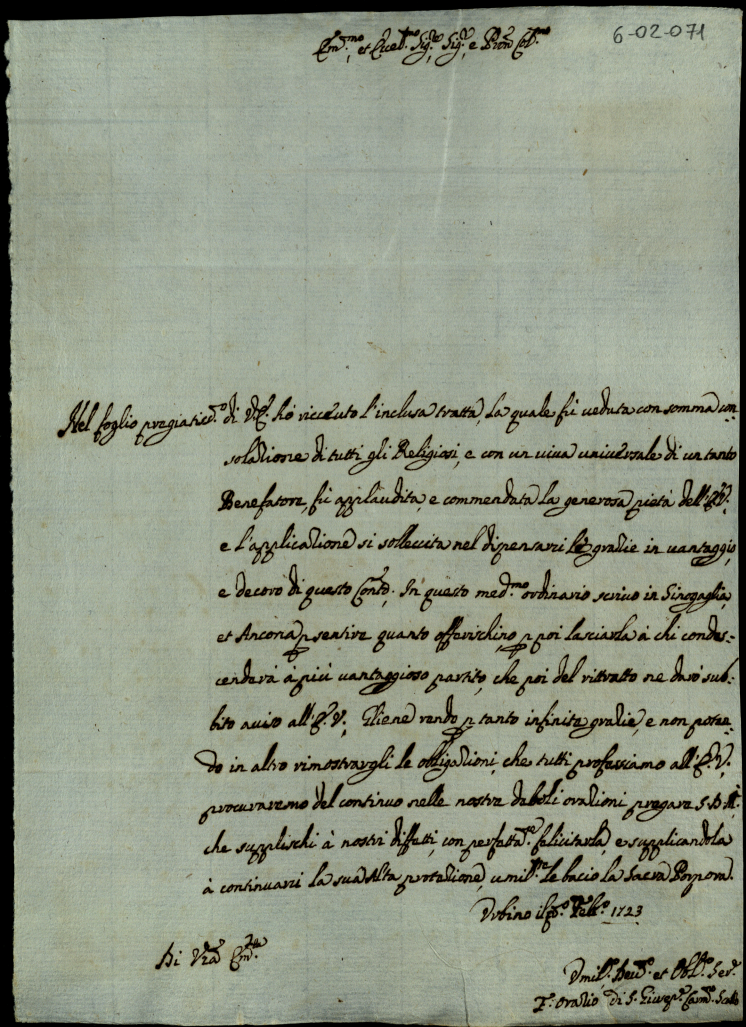 6-02-071
Em.mo et Rev.mo Sig.re Sig.r e Pron Col.mo
Nel foglio pregiatis.o di V.E. hò riceuuto l'inclusa tratta, la quale fù ueduta con somma con-
solazione di tutti gli Religiosi, e con un uiua uniuersale di un tanto
Benefatore, fù applaudita, e commendata la generosa pietà dell'E.V.
e l'applicazione si solleccita nel dispensarci le grazie in uantaggio,
e decoro di questo Conto. In questo med.mo ordinario scriuo in Sinogaglia,
et Ancona p sentire quanto offerischino, p poi lasciarla à chi condes-
cenderà à più uantaggioso partito, che poi del rittratto ne darò sub-
bito auiso all'E.V. Gliene rendo p tanto infinite grazie, e non poten-
do in altro rimostrargli le obligazioni, che tutti professiamo all'E.V.
procuraremo del continuo nelle nostre deboli orazioni pregare S.D.M.
che supplischi à nostri diffetti, con perfettam.te felicitarla, e supplicandola
à continuarci la sua Alta protezione, umil.te le bacio la Sacra Porpora.
Urbino il p.o Feb.o 1723
Di V.ra Em.za
Umil.o Deu.o et Obl.o Ser.e
F. Orazio di S. Giusep.e Carm. Scalzo